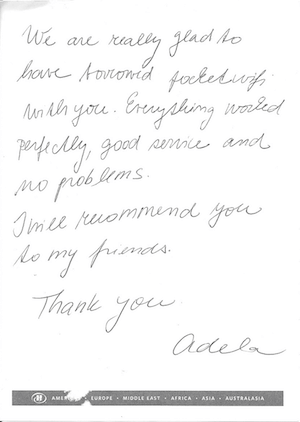 We are really glad to
have borrowed pocket wifi
with you. Everything worked
perfectly, good service and
no problems.
I will recommend you
to my friends.
Thank you
Adela
EUROPE • MIDDLE EAST • AFRICA • ASIA • AUSTRALASIA